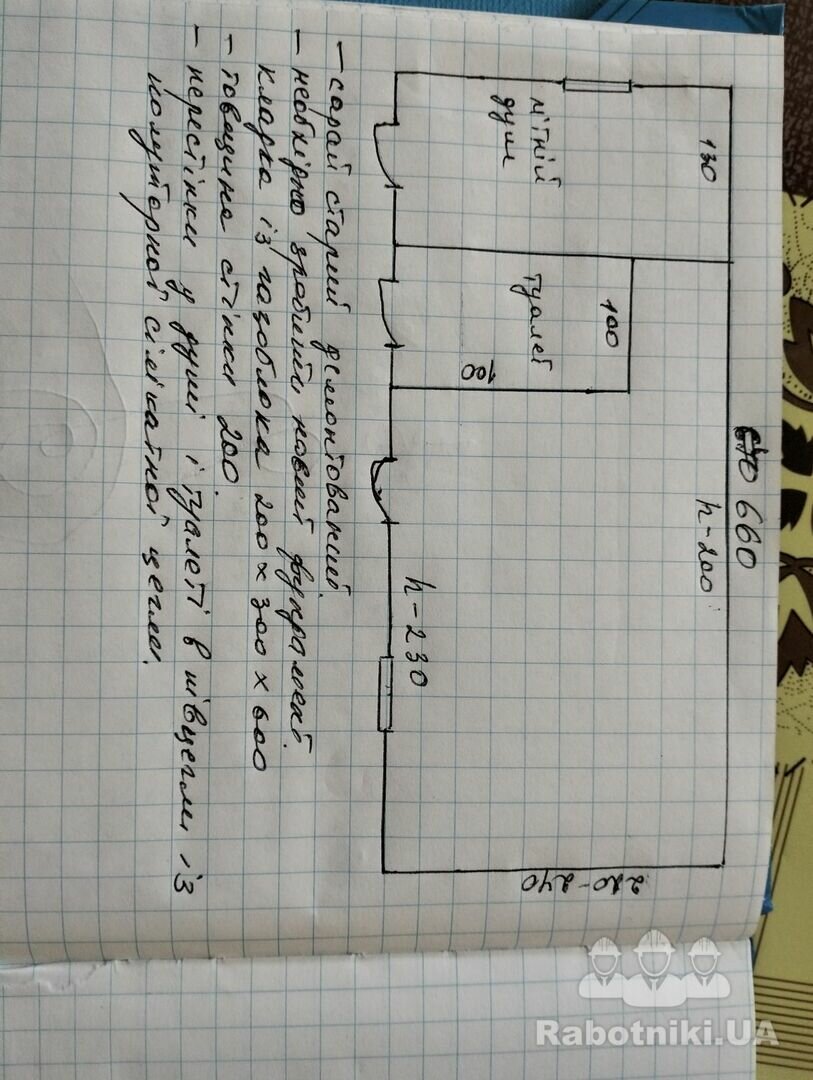 660
h-200
130
літній
душ
туалет
100
100
h-230
220-240
- сарай старий демонтований.
- необхідно зробити новий фундамент.
кладка із газоблока 200 х 300 х 600
- товщина стінки 200.
- перестінки у душі і туалеті в півцегли із
полуторної силікатної цегли.
Rabotniki.UA